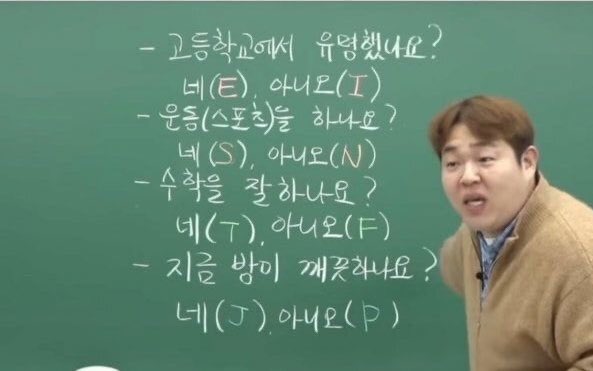 - 고등학교에서 유명했나요?
네(E), 아니오(I)
- 운동(스포츠)을 하나요?
네(S), 아니오(N)
- 수학을 잘하나요?
네(T), 아니오(F)
- 지금 방이 깨끗하나요?
네(J), 아니오(P)